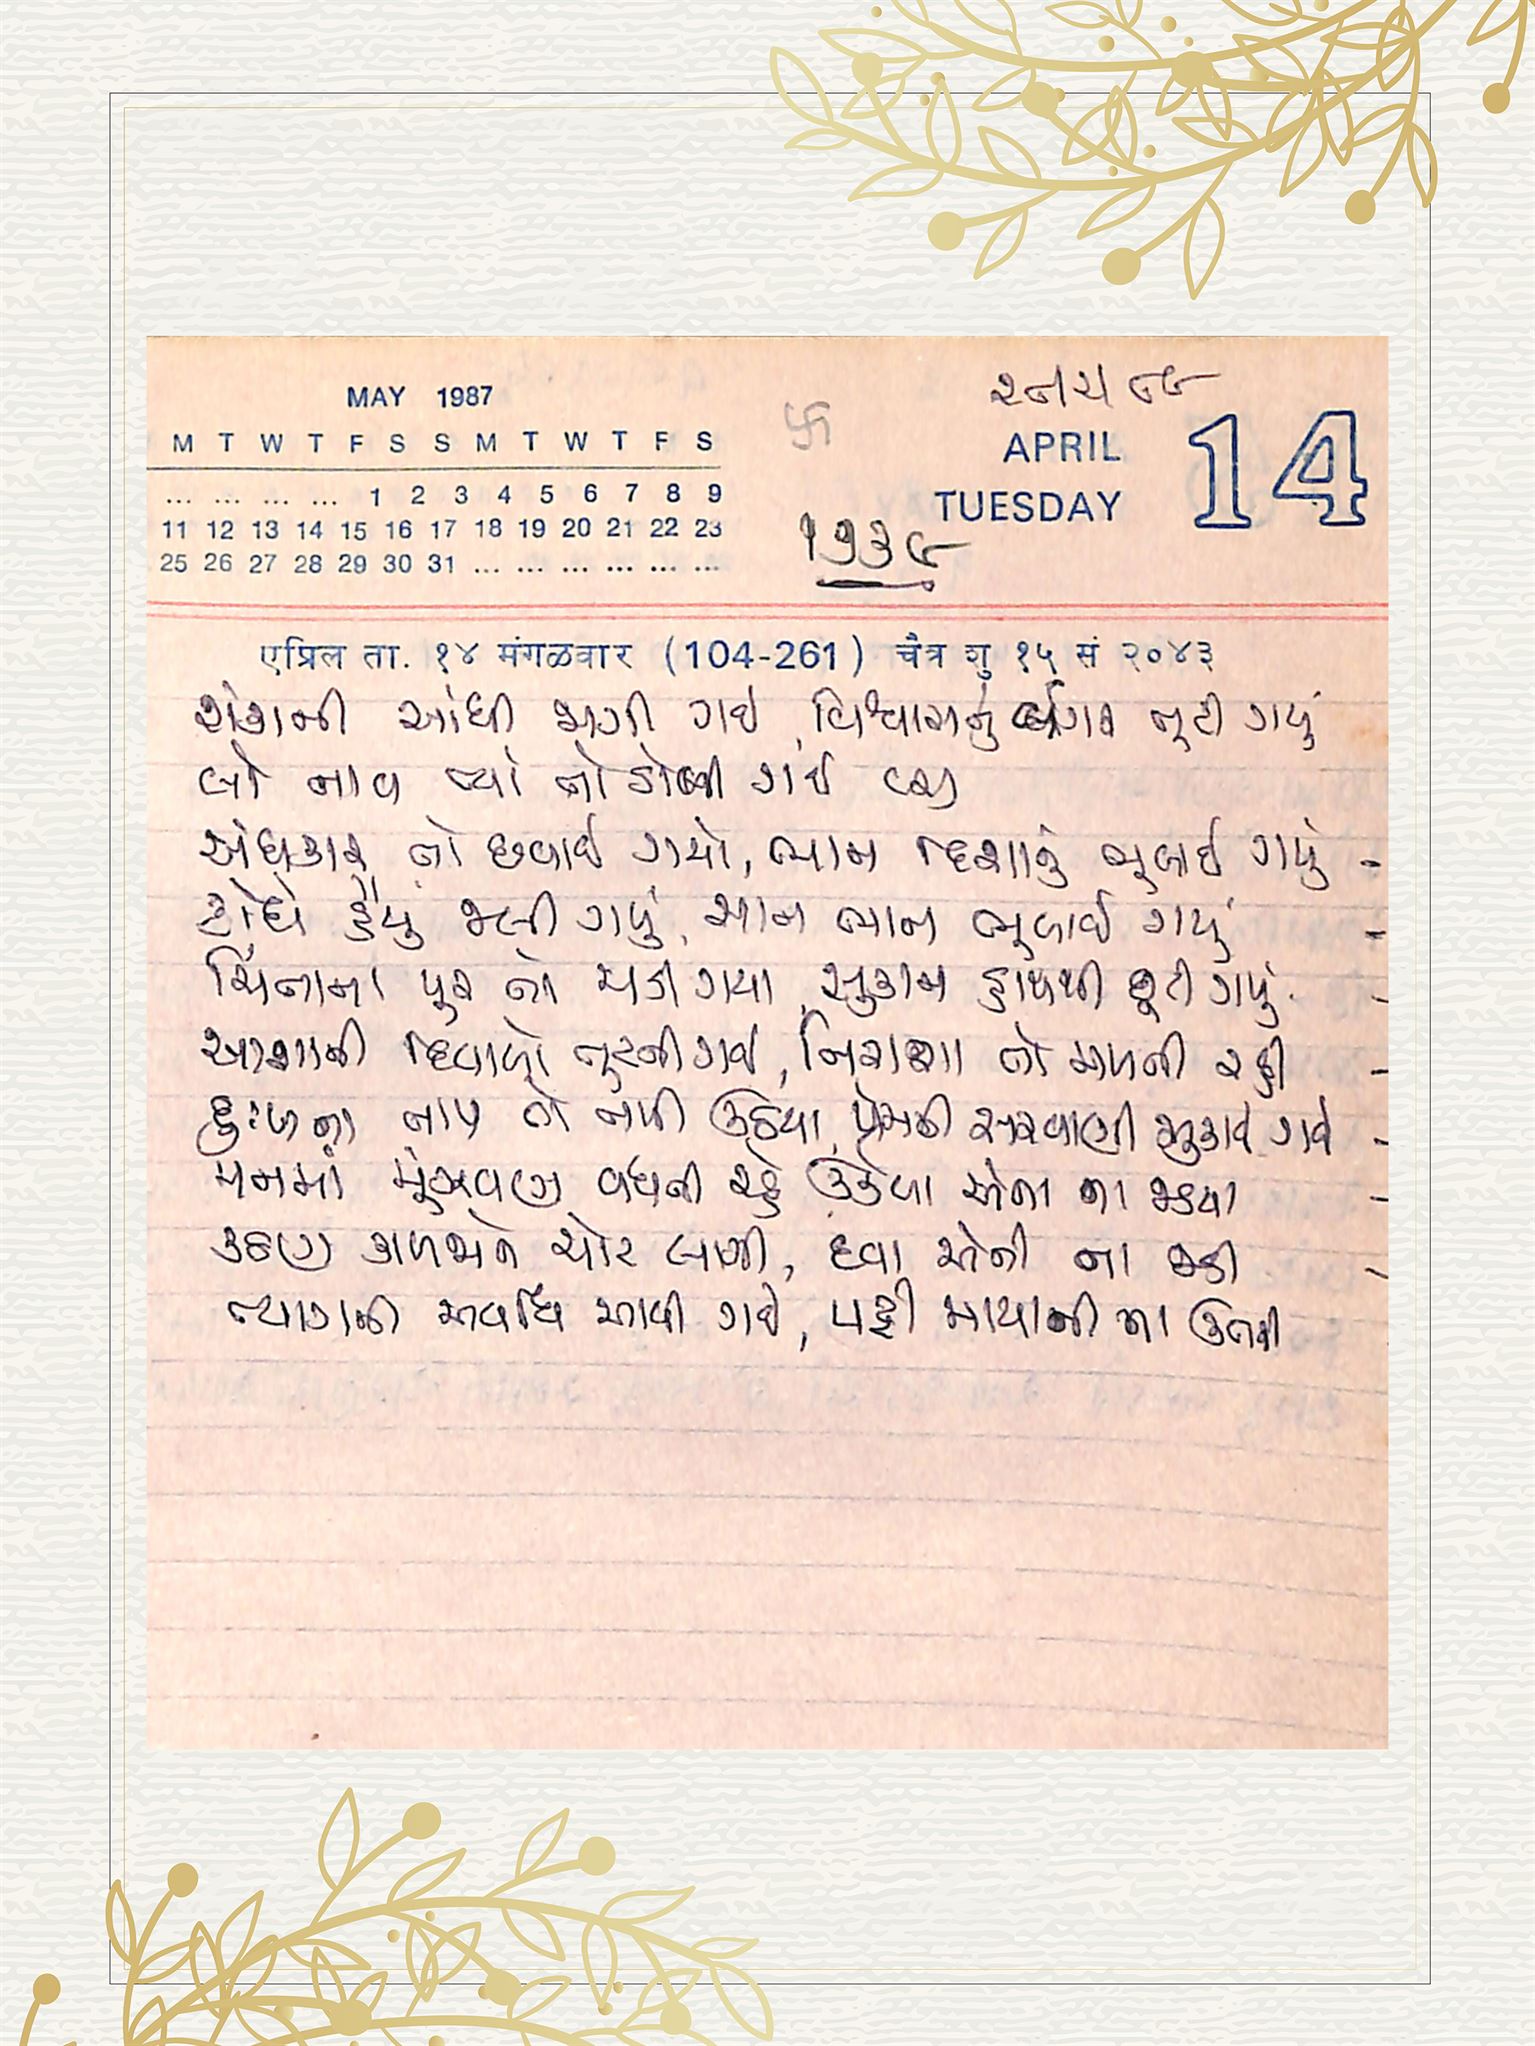 MAY 1987
M T W T F S S M T W T F S
... ... ... ... 1 2 3 4 5 6 7 8 9
11 12 13 14 15 16 17 18 19 20 21 22 23
25 26 27 28 29 30 31 ... ... ... ... ... ...
卐
APRIL
TUESDAY
14
૧૧૩૯
एप्रिल ता. १४ मंगळवार (104-261) चैत्र शु १५ सं २०४३
શંકાની આંધી જાગી ગઈ, વિશ્વાસનું લંગર તૂટી ગયું
લો નાવ ત્યાં તો ડોલી ગઈ
અંધકાર તો છવાઈ ગયો, ભાન દિશાનું ભૂલાઈ ગયું -
ક્રોધે હૈયું જલી ગયું, સાન ભાન ભૂલાઈ ગયું -
ચિંતાના પૂર તો ચડી ગયા, સુકાન હાથથી છૂટી ગયું -
આશાની દિવાલો તૂટતી ગઈ, નિરાશા તો મળતી રહી -
દુઃખના તાપ તો તપી ઉઠયા, પ્રેમની સરવાણી સુકાઈ ગઈ -
મનમાં મૂંઝવણ વધતી રહે ઉકેલ એના ના જડયા -
કઠણ કાળજાને ચોટ લાગી, દવા એની ના જડી -
ત્યાગની અવધિ આવી ગઈ, પટ્ટી માયાની ના ઉતરી